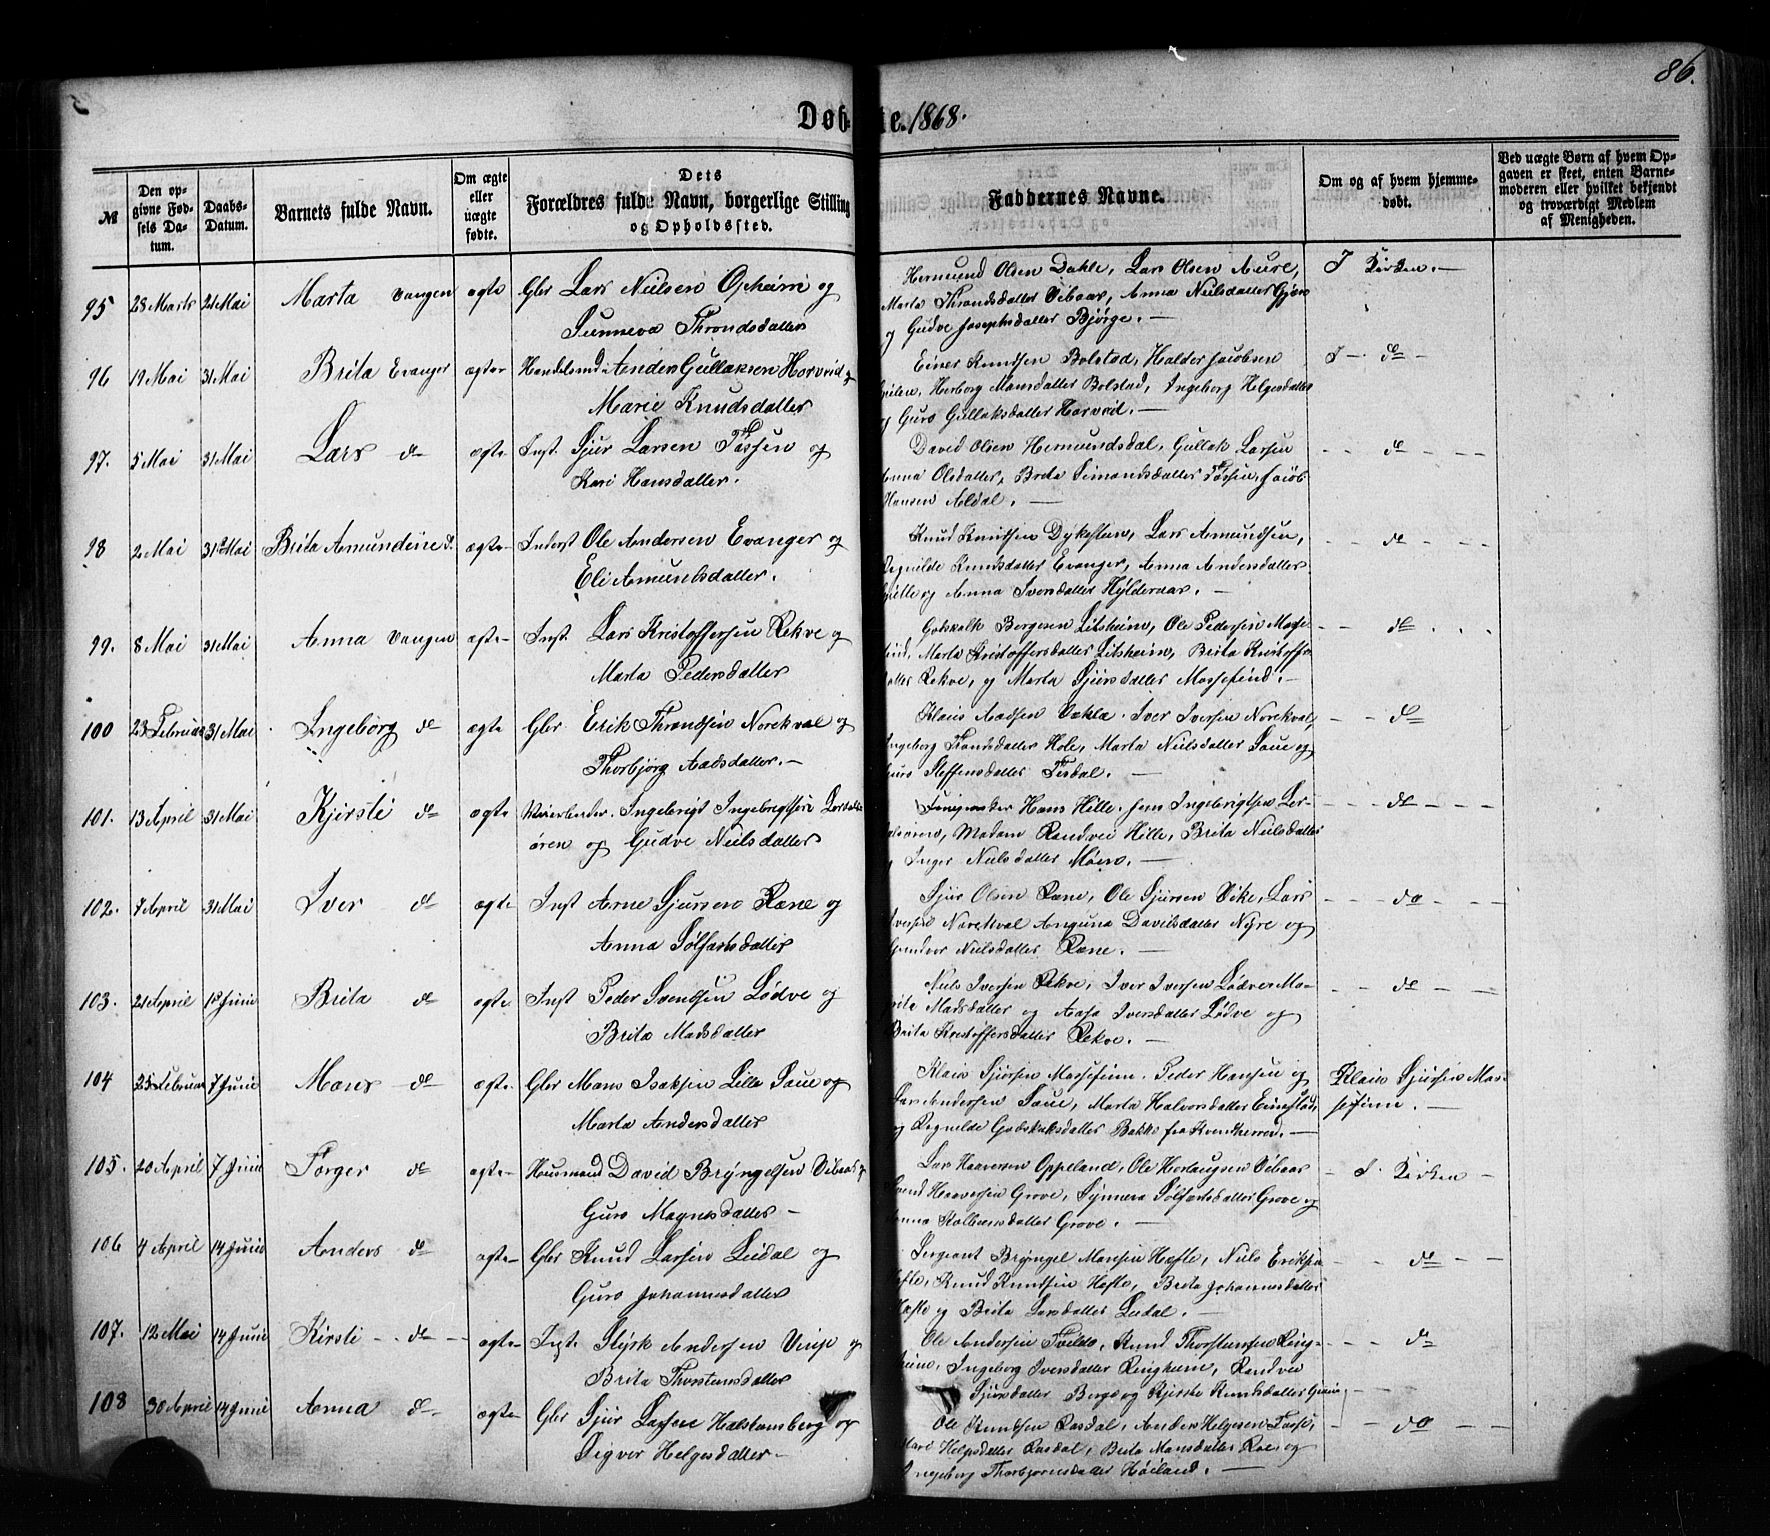 86.
Døbte. 1868.
№
Den op-
givne Fød-
sels Da-
tum.
Daabs-
Datum.
Barnets fulde Navn.
Om ægte
eller
uægte
fødte.
Dets
Forældres fulde Navn, borgerlige Stilling
og Opholdssted.
Faddernes Navne.
Om og af hvem hjemme-
døbt.
Ved uægte Børn af hvem Op-
gaven er skeet, enten Barne-
moderen eller hvilket bekjendt
og troværdigt Medlem
af Menigheden.
95 28 Marts 21 Mai Marta Vangen ægte Gbr Lars Nielsen Opheim og
Sunneva Throndsdatter
Hermund Olsen Dahle, Lars Olsen Aure,
Marta Throndsdatter Vibaar, Anna Nielsdatter
og Gudve Josephsdatter Bjørge. —
I Kirken. —
96 19 Mai 31 Mai Brita Evanger ægte Handelsmd Anders Gullaksen Horveid og
Marie Knudsdatter
Einer Knudsen Bolstad, Haldor Jacobsen
Herborg Monsdatter Bolstad, Ingeborg Helgesdatter
og Guro Gullaksdatter Horveid. —
I — do —
97. 5 Mai 31 Mai Lars do ægte Inst. Sjur Larsen Fossen og
Kari Hansdatter.
David Olsen Hemundsdal, Gullak Larsen
Anna Olsdatter, Brita Simonsdatter Fossen, Jacob
Hansen Aldal. —
- - do - - -
98 2 Mai 31 Mai Brita Amundine do. ægte Inderst Ole Andersen Evanger og
Eli Amundsdatter.
Knud Knudsen Dykesteen, Lars Amundsen,
Regnilde Knudsdatter Evanger, Anna Andersdatter
og Anna Iversdatter
- - - do - - -
99. 8 Mai 31 Mai Anna Vangen ægte Inst. Lars Kristoffersen Rekve og
Marta Pedersdatter
Gokskalk Børgesen Litsheim, Ole Pedersen Mosse-
Marta Kristoffersdatter Litsheim, Brita Kristoffers-
datter Rekve, og Marta Sjursdatter —
- - do . . .
100 23 Februar 31 Mai Ingeborg do ægte Gbr Erik Throndsen Norekval og
Thorbjørg Aadsdatter. —
Klaus Aadsen Iver Iversen Norekval,
Ingeborg Trondsdatter Hole, Marta Nielsdatter Saue og
Guro Steffensdatter —
- - do
101. 13 April 31 Mai Kjersti do ægte Ingebrigt Ingebrigtsen
øren og Gudve Nielsdatter
Hans Hille, Jens Ingebrigtsen
Madam Randvei Hille, Brita Nielsdatter
og Inger Nielsdatter Møen. —
- - - do - - -
102. 7 April 31 Mai Iver do ægte Inst Arne Sjursen Ræne og
Anna Sølfæstsdatter
Sjur Olsen Ræne, Ole Sjursen Vike, Lars
Iversen Norekval Anguna Davidsdatter Nyre og
Gundvor Nielsdatter Ræne. —
- - - do - - -
103. 21 April 1 Juni Brita do ægte Inst Peder Svendsen Lødve og
Brita Madsdatter
Niels Iversen Rekve, Iver Iversen Lødve Ma-
Madsdatter og Aasa Iversdatter Lødve og
Brita Kristoffersdatter Rekve. —
- - do - - -
104 25 Februar 7 Juni Mons do ægte Gbr Mons Isaksen Lille Saue og
Marta Andersdatter
Klaus Sjursen Mossefinn. Peder Hansen og
Lars Andersen Saue, Marta Halvorsdatter
og Regnilde Gotskalksdatter Bakke fra Kvindherred. —
Klaus Sjursen Mos-
sefinn. —
105. 20 April 7 Juni Torger do ægte Husmand David Bryngelsen Vibaar og
Guro Magnesdatter —
Lars Haaversen Oppeland, Ole Herlaugsen Vibaar
Svend Haaversen Grove, Synneva Sølfæstsdatter Grove og
Anna Kolbeinsdatter Grove. —
- I Kirken —
106 4 April 14 Juni Anders do ægte Gbr Knud Larsen Leidal og
Guro Johannesdatter
Sergeant Bryngel Monsen Hæfte, Niels Eriksen
Hæfte, Knud Knudsen Hæfte, Brita Johannesdatter
Hæfte og Brita Larsdatter Leidal. —
- - do - -
107. 12 Mai 14 Juni Kirsti - - do - - ægte Inst. Styrk Andersen Vinje og
Brita Thorstensdatter
Ole Andersen Tvilde, Knud Thorstensen Ring-
heim, Ingeborg Iversdatter Ringheim, Randvei
Sjursdatter Berge og Kjersti Knudsdatter —
- - - do
108 30 April 14 Juni Anna do ægte Gbr Sjur Larsen Halstensberg og
Sigver Helgesdatter —
Ole Knudsen Rasdal, Anders Helgesen
Mari Helgesdatter Rasdal, Brita Monsdatter og
Ingeborg Thorbjørnsdatter Høiland. —
- - do - -